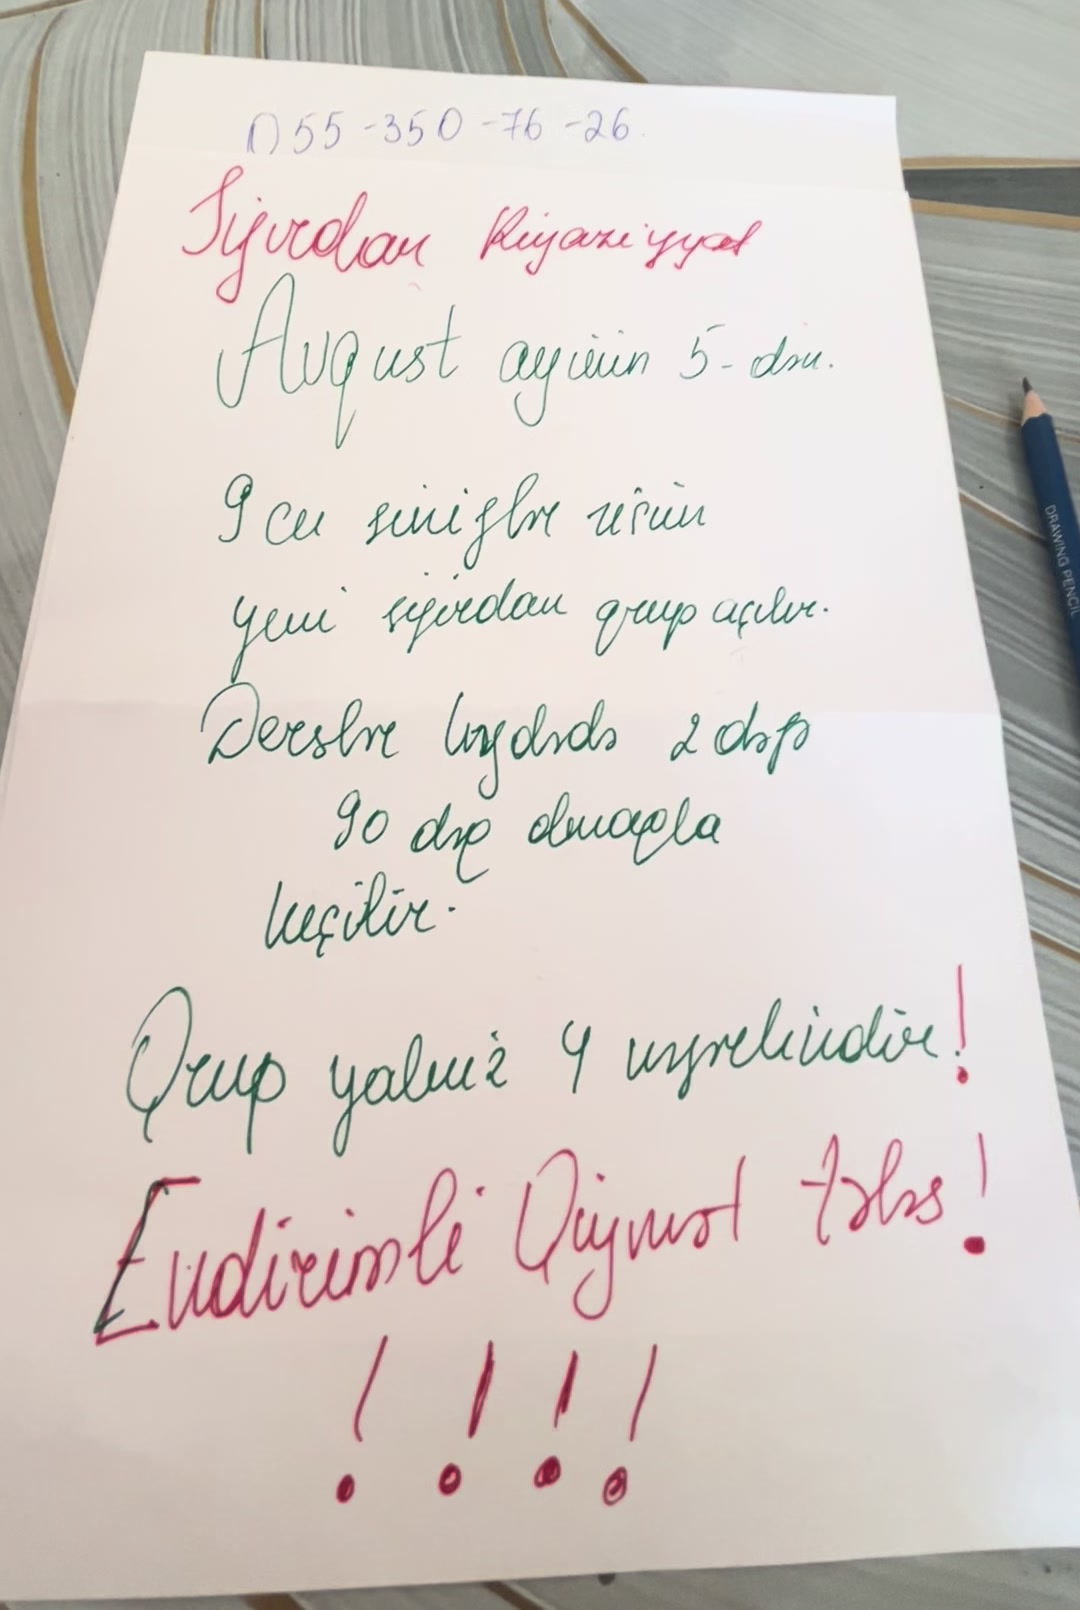 055-350-76-26
Sıfırdan Riyaziyyat
Avqust ayının 5-dən.
9 cu siniflər üçün
yeni sıfırdan qrup açılır.
Dərslər həftədə 2 dəfə
90 dəq olmaqla
keçilir.
Qrup yalnız 4 nəfərlikdir!
Endirimli Qiymət təbs!
! ! ! !